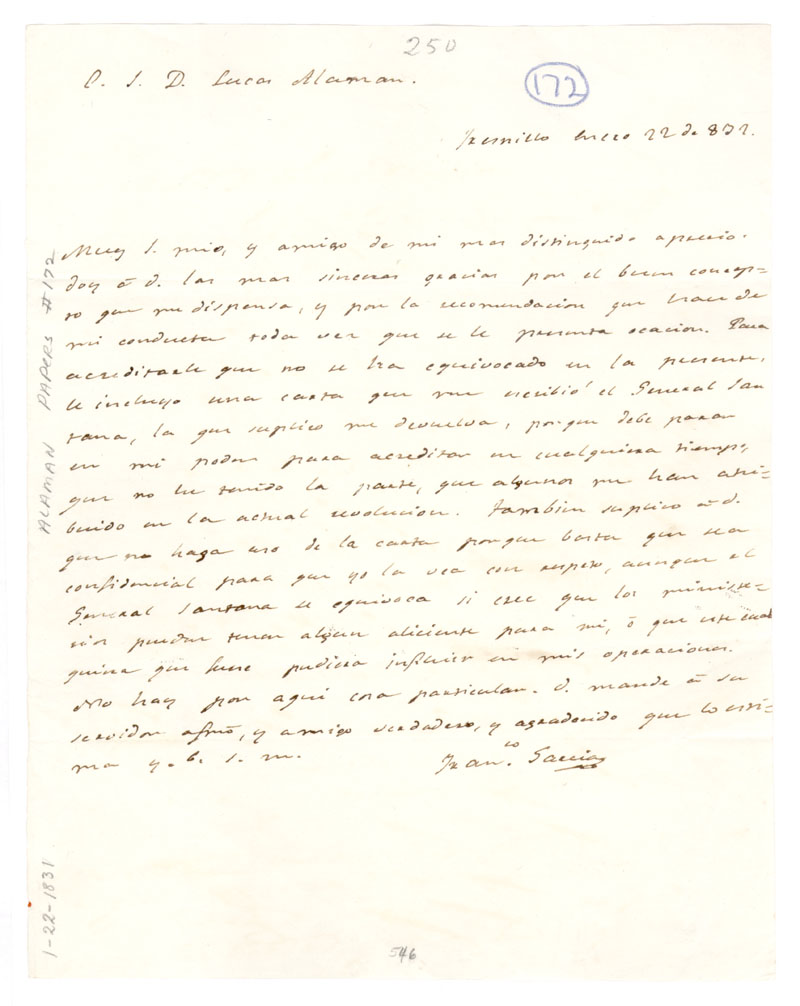 250
C. S. D. Lucas Alaman.
172
Fresnillo Enero 22 de 832.
Muy S. mio, y amigo de mi mas distinguido aprecio.
doy á V. las mas sinceras gracias por el buen concep=
to que me dispensa, y por la recomendacion que hace de
mi conducta toda vez que se le presenta ocacion. Para
acreditarle que no se ha equivocado en la presente,
le incluyo una carta que me escribió el General San
tana, la que suplico me devuelva, porque debe parar
en mi poder para acreditar en cualquiera tiempo,
que no he tenido la parte, que algunos me han atri=
buido en la actual revolucion. tambien suplico á V.
que no haga uso de la carta porque basta que sea
confidencial para que yo la vea con respeto, aunque el
General Santana se equivoca si cree que los ministe=
rios puedan tener algun aliciente para mi, ó que este cual
quiera que fuese pudiera influir en mis operaciones.
No hay por aqui cosa particular. V. mande á su
servidor afmo, y amigo verdadero, y agradecido que lo esti=
ma y. b. s. m.
Fran.co Garcia
ALAMAN PAPERS #172
1-22-1831
546